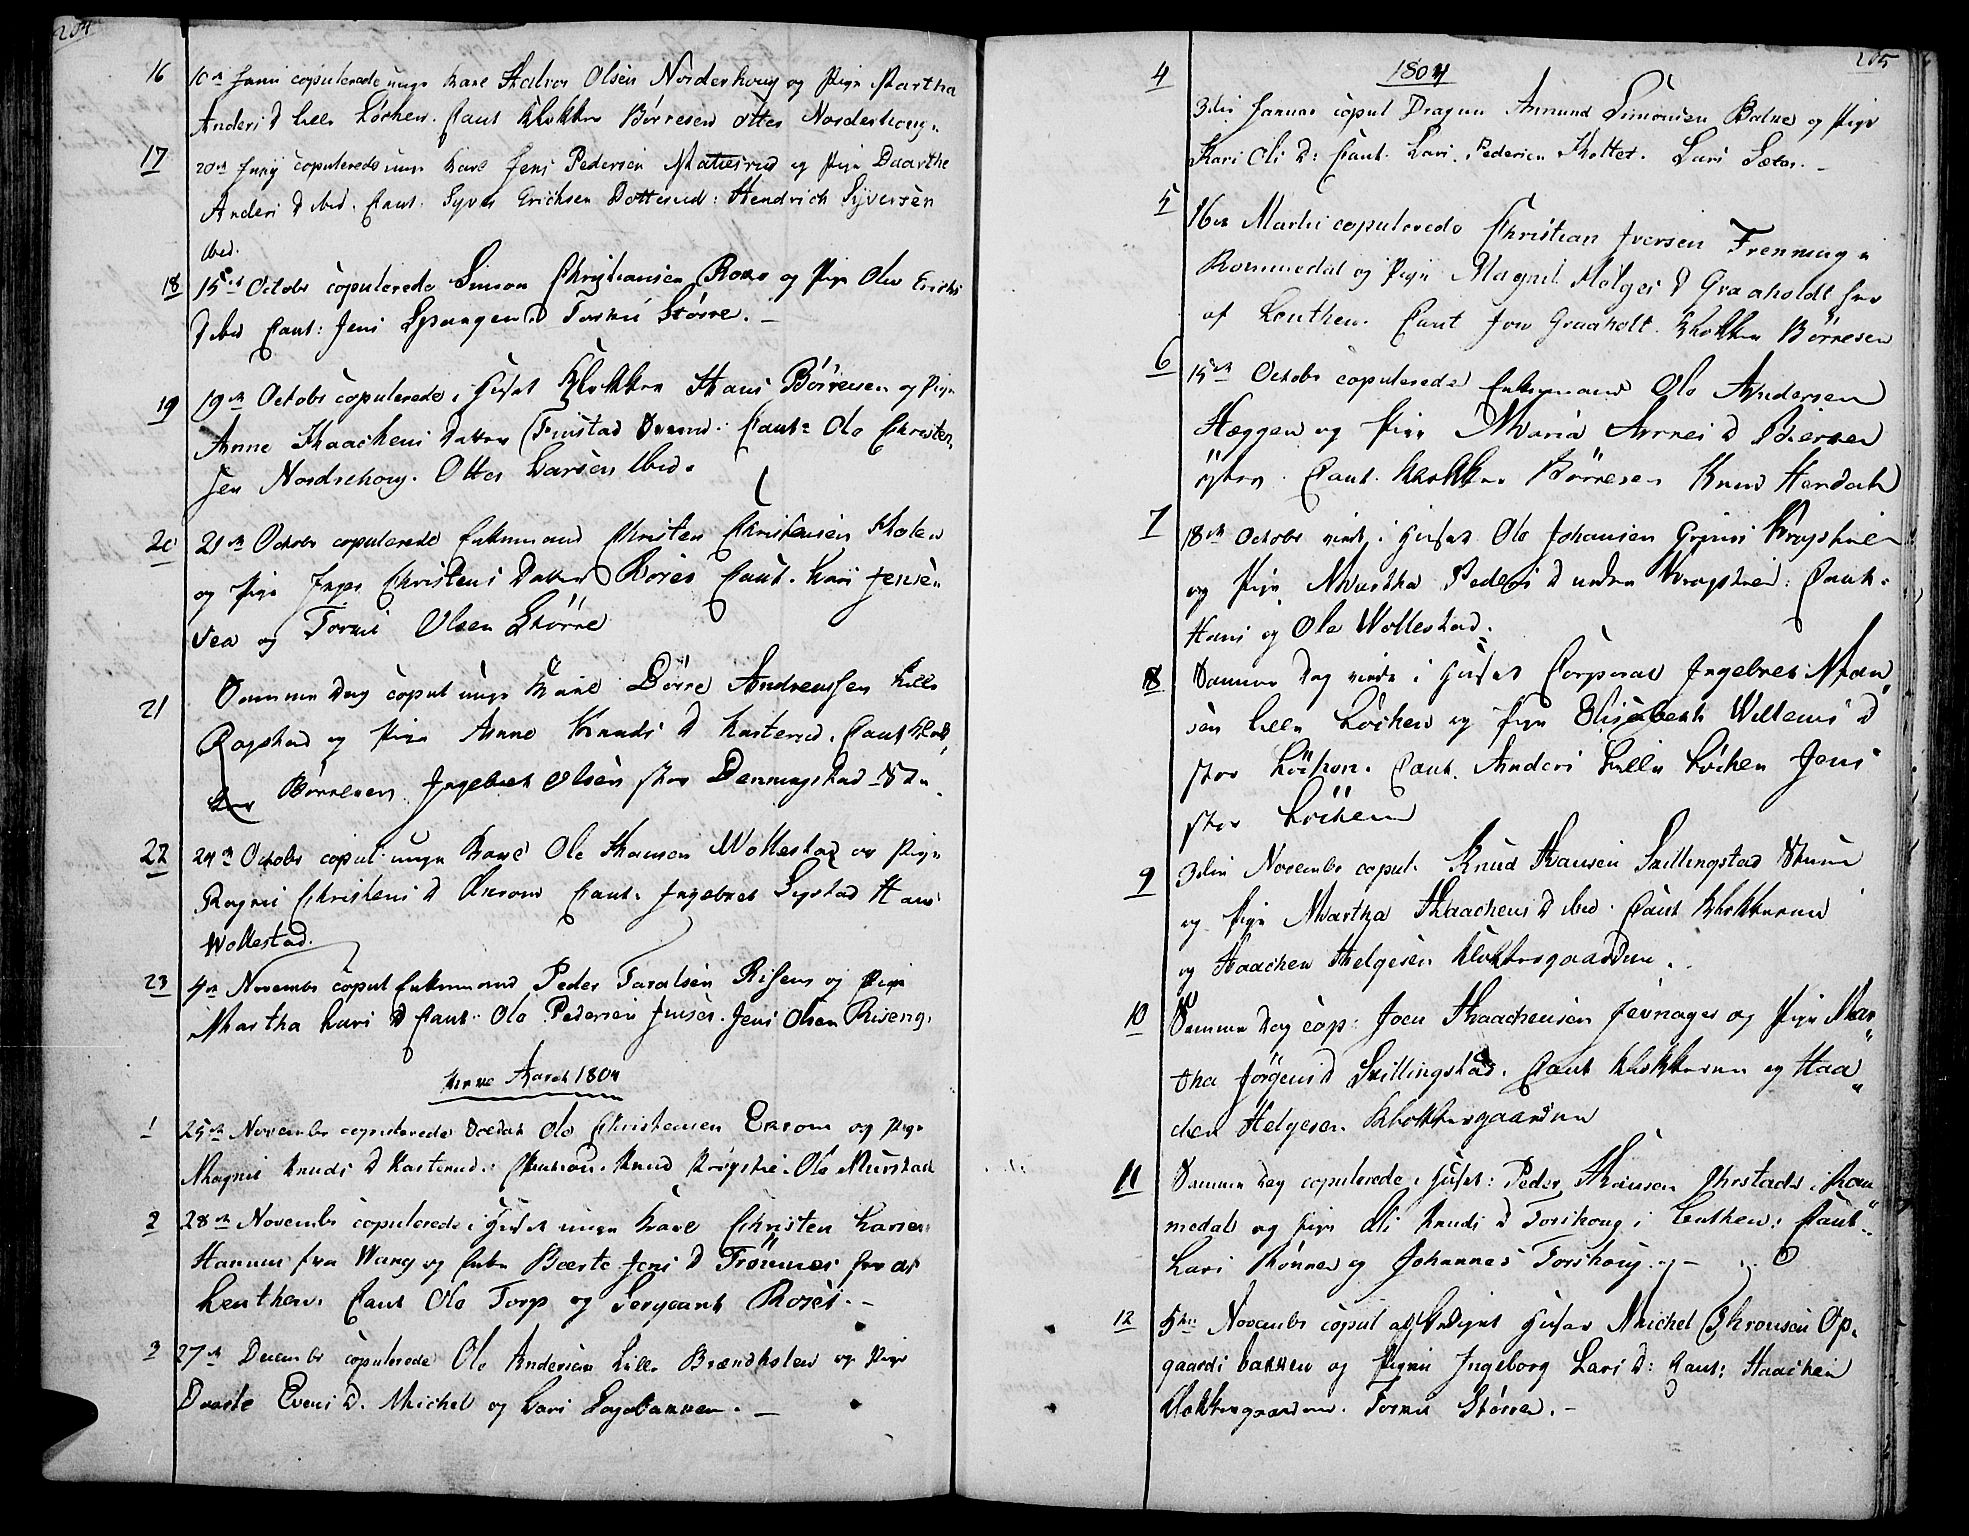 204
16 10de Junii copulerede unge Karl Halvor Olsen Norderhoug og Pige Martha
Anders D lille Løchen. Caut Klokker Børresen Otter Norderhoug.
17 20de Junij copulerede unge Karl Jens Pedersen Mattiesrud og Pige Daarthe
Anders D ibid. Caut. Syver Erichsen Dotterud: Hendrich Syversen
ibid.
18 15de Octobr copulerede Simon Christiansen Roxo og Pige Olea Erichs
D ibid Caut: Jens Spangen Torkil Større. –
19 19de Octobr copulerede i Huset Klokker Hans Børresen og Pige
Anne Haachens Datter Finstad Caut: Ole Christen
sen Nordrehoug. Otter Larsen ibid.
20 21de Octobr copulerede Enkemand Christen Christensen Holen
og Pige Inger Christens Datter Roset Caut. Lars Jensen
og Torkil Olsen Større
21 Samme Dag copul unge Karl Børre Andreassen lille
Ragstad og Pige Anne Knuds D Kasterud. Caut Klok
ker Børresen Ingebret Olsen stor Dennungstad
22 24de Octobr copul. unge Karl Ole Hansen Wollestad og Pige
Ragnil Christens D Caut. Ingebret Systad Hans
Wollestad.
23 4de Novembr copul Enkemand Peder Taralsen Risens og Pige
Martha Lars D Caut: Ole Pedersen Jens Olsen Riseng.
Kirke Aaret 1804
1 25de Novembr copulerede Soldat Ole Christensen og Pige
Magnil Knuds D Kasterud: Knud Krogstie. Ole Murstad
2 28de Novembr copulerede i Huset unge Karl Christen Larsen
fra Wang og Enke Bærte Jens D Trønnes her af
Leuthen. Caut Ole Torp og Sergeant Roset. –
3 27de Decembr copulerede Ole Andersen lille Brændholen og Pige
Daarte Evens D. Michel og Lars Sagebakken. –
205
1804
4 3die Januar copul Dragun Amund Simonsen Balne og Pige
Kari Ols D: Caut. Lars Pedersen Lars Sæter. –
5 16de Martii copulerede Christian Iversen Frenning
Rommedal og Pige Magnil Helges D Graaholdt her
af Leuthen. Caut Jon Graaholt. Klokker Børresen
6 15de Octobr copulerede Enkemand Ole Andersen
Hæggen og Pige Maria Arnes D
østre. Caut. Klokker Børresen Knud
7 18de Octobr viet i Huset Ole Johansen Krogstie
og Pige Martha Peders D nedre Krogstie: Caut.
Hans og Ole Wollestad.
8 Samme Dag viede i Huset Corporal Ingebret
sen lille Løchen og Pige Elisabeth Willems D
stor Løchen. Caut. Anders lille Løchen Jens
stor Løchen
9 3die Novembr copul. Knud Hansen Svillingstad
og Pige Martha Haachens D ibid. Caut Klokkeren
og Haachen Helgesen Klokkergaarden.
10 Samme Dag cop: Joen Haachensen Jevnager og Pige Mar
tha Jørgens D Svillingstad. Caut Klokkeren og Haa
chen Helgesen Klokkergaarden
11 Samme Dag copulerede i Huset: Peder Hansen i Rom
medal og Pige Oli Knuds D Torshoug i Leuthen: Caut.
Lars Rønne og Johannes Torshoug. –
12 5te Novembr copul Huset Michel Op
gaards bakken og Pigen Ingeborg Lars D: Caut: Haachen
Klokkergaarden. Torkil Større. –